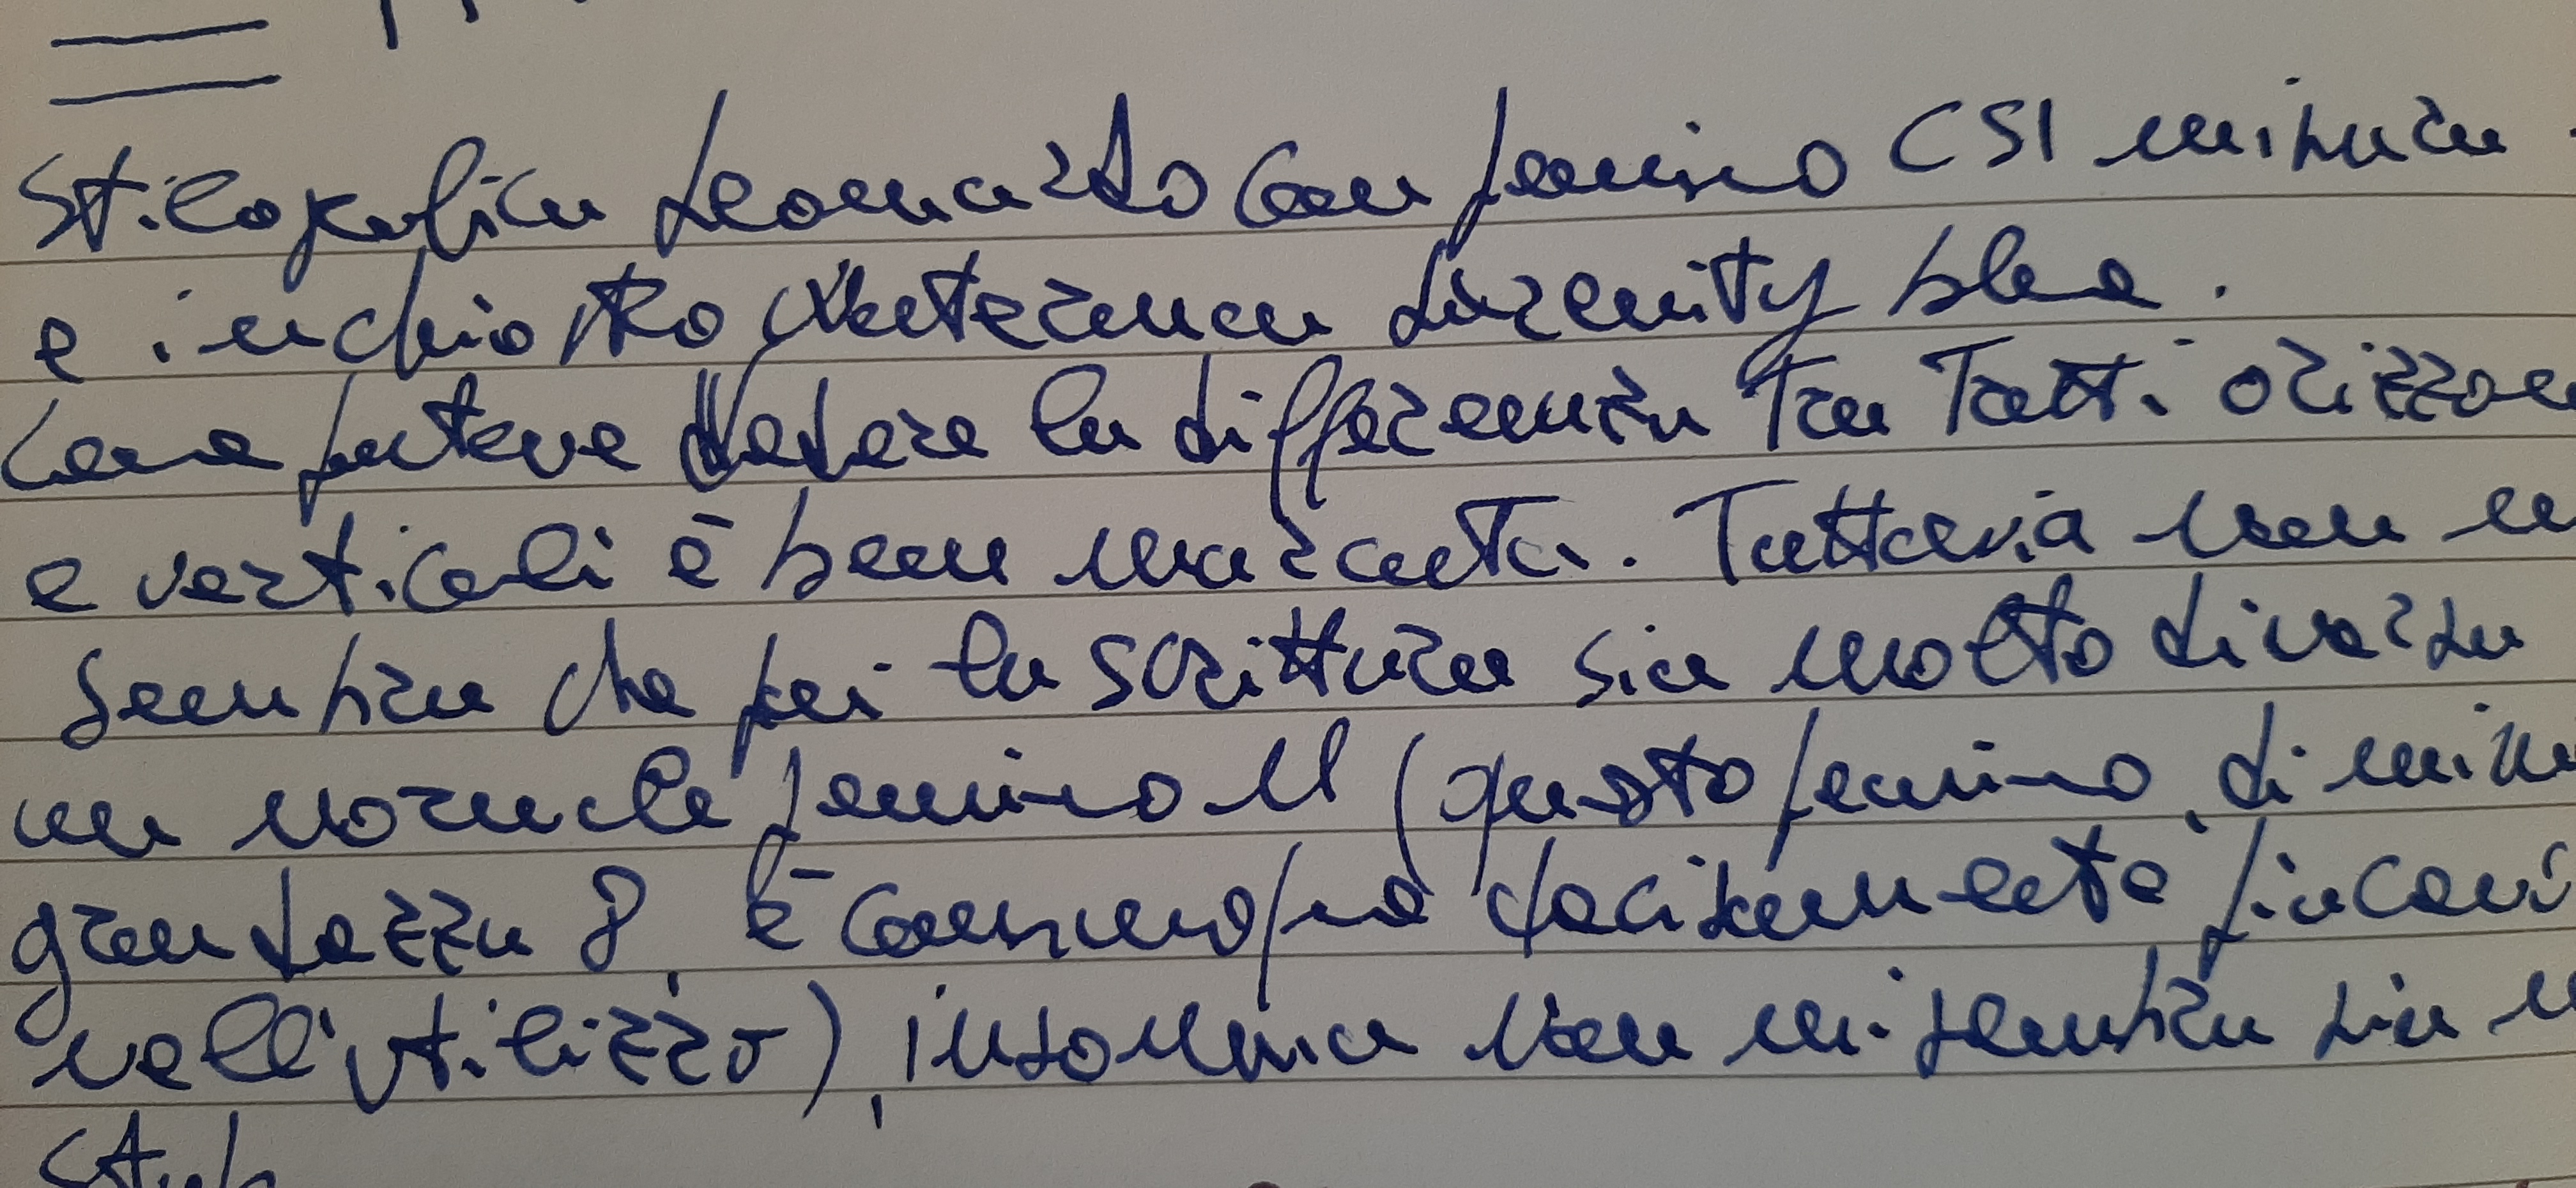 Stilografica Leonardo con pennino CSI misura
e inchiostro Waterman Serenity blue.
Come potete vedere la differenza tra Tratti orizzon
e verticali è ben marcata. Tuttavia non m
sembra che poi la scrittura sia molto diversa
un normale pennino M (questo pennino, di mis
grandezza 8, è comunque decisamente
nell'utilizzo), insomma non mi sembra sia u
Stub